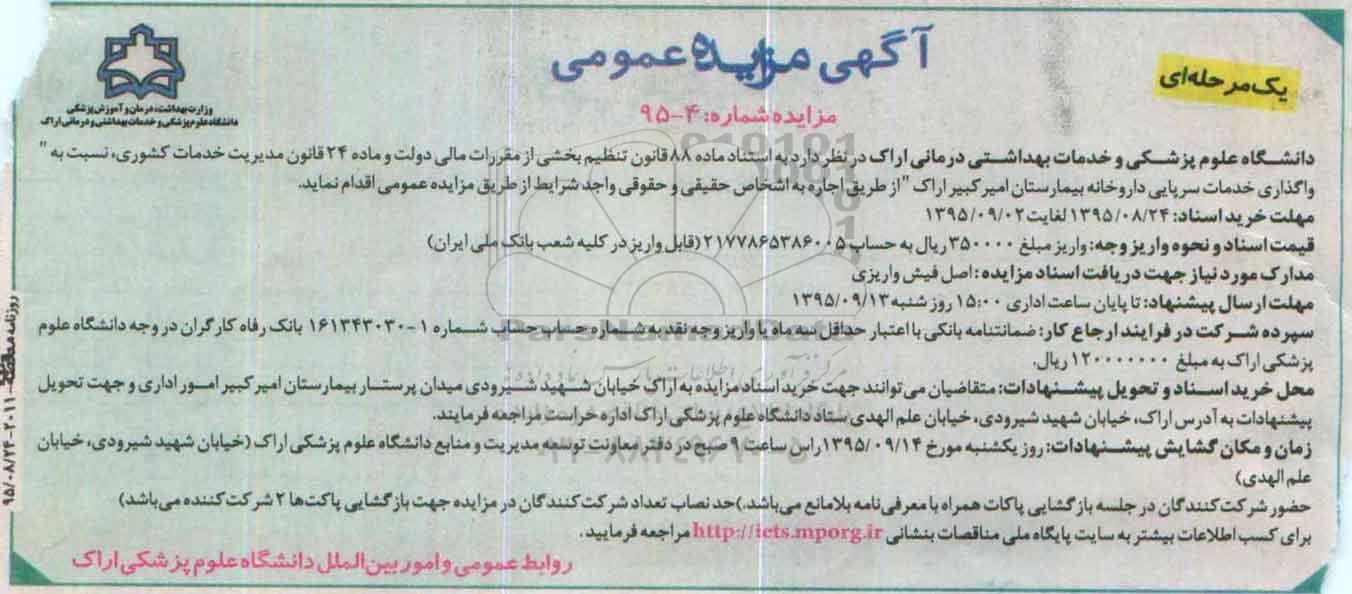 آگهی مزایده عمومی
یک مرحله‌ای
مزایده شماره: ۴-۹۵
وزارت بهداشت، درمان و آموزش پزشکی
دانشگاه علوم پزشکی و خدمات بهداشتی و درمانی اراک
دانشگاه علوم پزشکی و خدمات بهداشتی درمانی اراک در نظر دارد به استناد ماده ۸۸ قانون تنظیم بخشی از مقررات مالی دولت و ماده ۲۴ قانون مدیریت خدمات کشوری، نسبت به "
واگذاری خدمات سرپایی داروخانه بیمارستان امیر کبیر اراک " از طریق اجاره به اشخاص حقیقی و حقوقی واجد شرایط از طریق مزایده عمومی اقدام نماید.
مهلت خرید اسناد: ۱۳۹۵/۰۸/۲۴ لغایت ۱۳۹۵/۰۹/۰۲
قیمت اسناد و نحوه واریز وجه: واریز مبلغ ۳۵۰۰۰۰ ریال به حساب ۲۱۷۷۸۶۵۳۸۶۰۰۵ (قابل واریز در کلیه شعب بانک ملی ایران)
مدارک مورد نیاز جهت دریافت اسناد مزایده: اصل فیش واریزی
مهلت ارسال پیشنهاد: تا پایان ساعت اداری ۱۵:۰۰ روز شنبه ۱۳۹۵/۰۹/۱۳
سپرده شرکت در فرایند ارجاع کار: ضمانتنامه بانکی با اعتبار حداقل سه ماه یا واریز وجه نقد به شماره حساب حساب شماره ۱-۱۶۱۳۴۳۰۳۰ بانک رفاه کارگران در وجه دانشگاه علوم
پزشکی اراک به مبلغ ۱۲۰۰۰۰۰۰۰۰ ریال.
محل خرید اسناد و تحویل پیشنهادات: متقاضیان می‌توانند جهت خرید اسناد مزایده به اراک خیابان شهید شیرودی میدان پرستار بیمارستان امیر کبیر امور اداری و جهت تحویل
پیشنهادات به آدرس اراک، خیابان شهید شیرودی، خیابان علم الهدی ستاد دانشگاه علوم پزشکی اراک اداره حراست مراجعه فرمایند.
زمان و مکان گشایش پیشنهادات: روز یکشنبه مورخ ۱۳۹۵/۰۹/۱۴ راس ساعت ۹ صبح در دفتر معاونت توسعه مدیریت و منابع دانشگاه علوم پزشکی اراک (خیابان شهید شیرودی، خیابان
علم الهدی)
حضور شرکت کنندگان در جلسه بازگشایی پاکات همراه با معرفی نامه بلامانع می‌باشد.)حد نصاب تعداد شرکت کنندگان در مزایده جهت بازگشایی پاکت‌ها ۲ شرکت کننده می‌باشد)
برای کسب اطلاعات بیشتر به سایت پایگاه ملی مناقصات بنشانی http://iets.mporg.ir مراجعه فرمایید.
روابط عمومی و امور بین‌الملل دانشگاه علوم پزشکی اراک
ParsNamadData